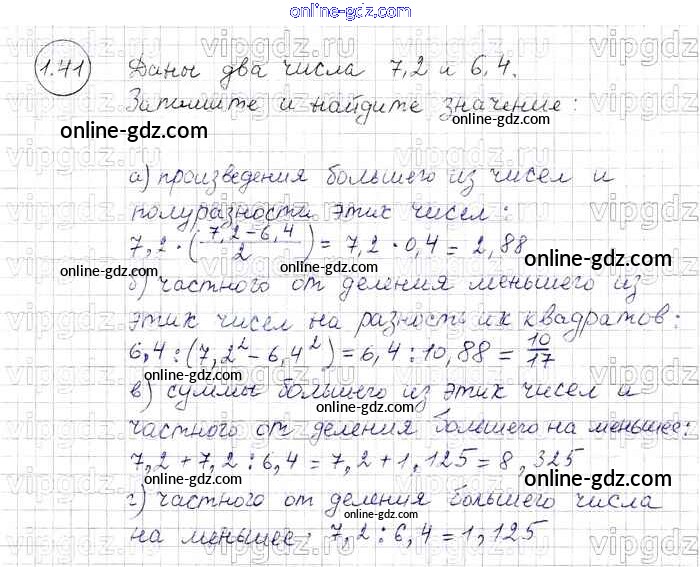 online-gdz.com
1.41 Даны два числа 7,2 и 6,4.
Запишите и найдите значение:
online-gdz.com
online-gdz.com
а) произведения большего из чисел и
полуразности этих чисел:
7,2 · (7,2-6,4/2) = 7,2 · 0,4 = 2,88
online-gdz.com
online-gdz.com
б) частного от деления меньшего из
этих чисел на разность их квадратов:
online-gdz.com
6,4 : (7,2² - 6,4²) = 6,4 : 10,88 = 10/17
в) суммы большего из этих чисел и
online-gdz.com
частного от деления большего на меньшее:
online-gdz.com
7,2 + 7,2 : 6,4 = 7,2 + 1,125 = 8,325
online-gdz.com
г) частного от деления большего числа
online-gdz.com
на меньшее: 7,2 : 6,4 = 1,125
online-gdz.com
vipgdz.ru